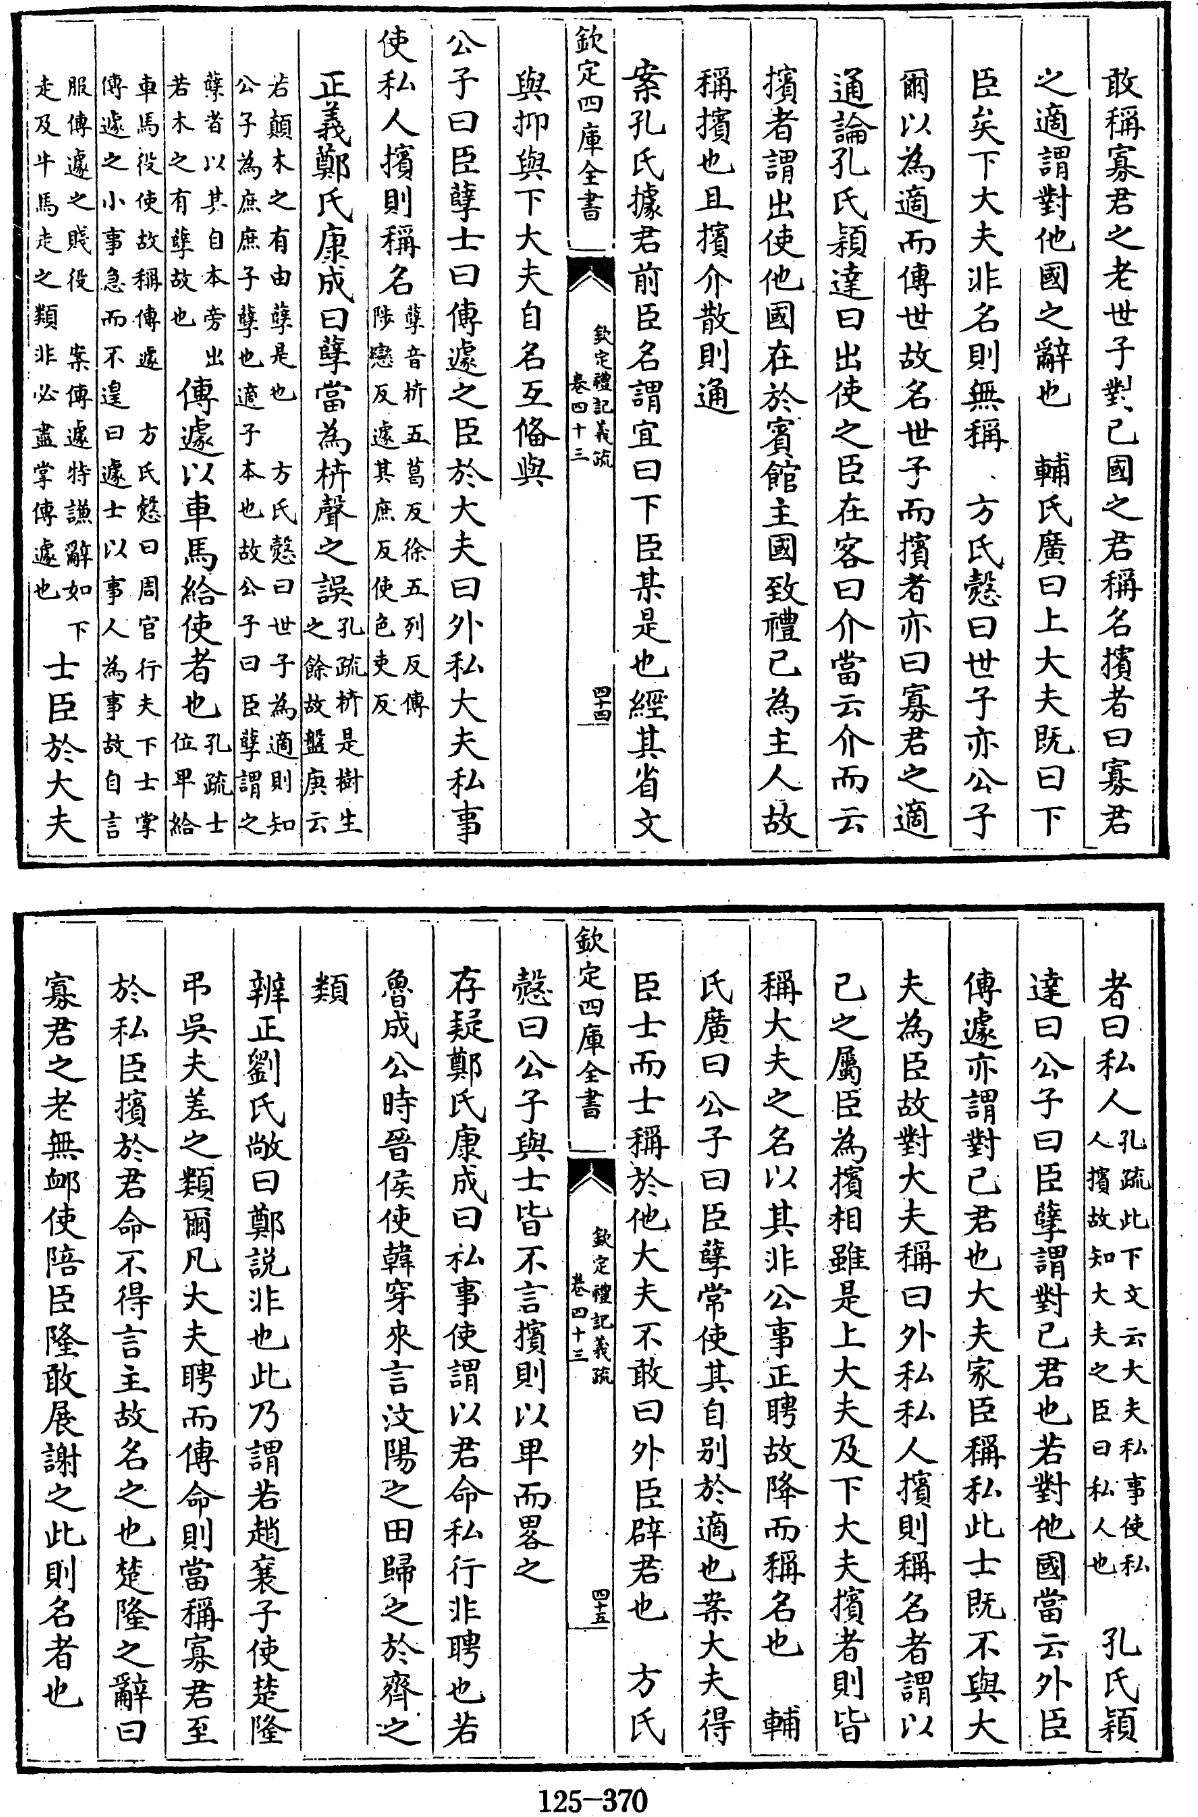 敢稱寡君之老世子對己國之君稱名擯者曰寡君
之適謂對他國之辭也　輔氏廣曰上大夫既曰下
臣矣下大夫非名則無稱　方氏慤曰世子亦公子
爾以為適而傳世故名世子而擯者亦曰寡君之適
通論孔氏穎達曰出使之臣在客曰介當云介而云
擯者謂出使他國在於賓館主國致禮己為主人故
稱擯也且擯介散則通
案孔氏據君前臣名謂宜曰下臣某是也經其省文
欽定四庫全書
欽定禮記義疏
卷四十三
四十四
與抑與下大夫自名互備與
公子曰臣孽士曰傳遽之臣於大夫曰外私大夫私事
使私人擯則稱名
孽音枿五葛反徐五列反傳
陟戀反遽其庶反使色吏反
正義鄭氏康成曰孽當為枿聲之誤
孔疏枿是樹生
之餘故盤庚云
若顛木之有由孽是也　方氏慤曰世子為適則知
公子為庶庶子孽也適子本也故公子曰臣孽謂之
孽者以其自本旁出
若木之有孽故也
傳遽以車馬給使者也
孔疏士
位卑給
車馬役使故稱傳遽　方氏慤曰周官行夫下士掌
傳遽之小事急而不遑曰遽士以事人為事故自言
服傳遽之賤役　案傳遽特謙辭如下
走及牛馬走之類非必盡掌傳遽也
士臣於大夫
者曰私人
孔疏此下文云大夫私事使私
人擯故知大夫之臣曰私人也
孔氏穎
達曰公子曰臣孽謂對己君也若對他國當云外臣
傳遽亦謂對己君也大夫家臣稱私此士既不與大
夫為臣故對大夫稱曰外私私人擯則稱名者謂以
己之屬臣為擯相雖是上大夫及下大夫擯者則皆
稱大夫之名以其非公事正聘故降而稱名也　輔
氏廣曰公子曰臣孽常使其自別於適也案大夫得
臣士而士稱於他大夫不敢曰外臣辟君也　方氏
欽定四庫全書
欽定禮記義疏
卷四十三
四十五
慤曰公子與士皆不言擯則以卑而畧之
存疑鄭氏康成曰私事使謂以君命私行非聘也若
魯成公時晉侯使韓穿來言汶陽之田歸之於齊之
類
辨正劉氏敞曰鄭説非也此乃謂若趙襄子使楚隆
弔吳夫差之類爾凡大夫聘而傳命則當稱寡君至
於私臣擯於君命不得言主故名之也楚隆之辭曰
寡君之老無卹使陪臣隆敢展謝之此則名者也
125-370